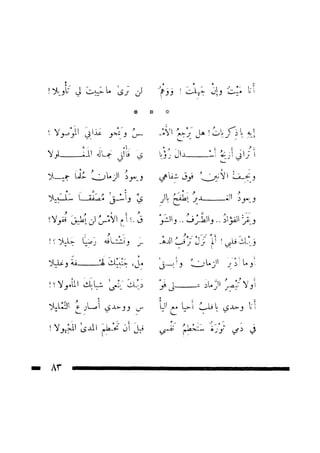 أنا مَيْتٌ وإنْ جَهِلْتَ ! وَوَهْمٌ لن ترى ما حييتَ لي تأويلا !
* * *
إيهِ يا ذكرياتُ ! هل يَرْجعُ الأمْـسُ ويمحو عذابيَ الموصولا ؟
أتُراني أزيحُ أسْـدالَ رُؤْيايَ فألقى جماله المغـلولا
ويجفُّ الأنينُ فوق شفاهي ويعودُ الزمانُ حُلْمًا جميـلا
ويعودُ الغـديرُ يَطْفَحُ بالريِّ وأُسْقى مُصَفّقًا سلسبيلا
ويقرّ الفؤادُ .. والطَّرْفُ .. والشوْقُ .. ! أم الأمْسُ لن يُطيقَ قُفولا ؟
وَيْكَ قلبي ! ألَمْ تَزَلْ تَرْقُبُ الدهْـرَ وتشتاقُه رَضِيًّا جليلا ؟!
أوما أدْبَرَ الزمانُ وأبـقى مِلْءَ جَنْبَيْكَ لهْـفةً وغليلا
أولا تُبْصِرُ الرَّمادَ على فوْدَيْكَ يَنْعى شبابَكَ المأمولا ؟!
أنا وحدي يا قلبُ أحيا مع اليأْسِ ووحدي أصارعُ التَّعْليلا
في دَمي ثورةٌ ستَحْطِمُ نَفْسي قبلَ أن تَحْطِمَ المدى المجهولا !
٨٣